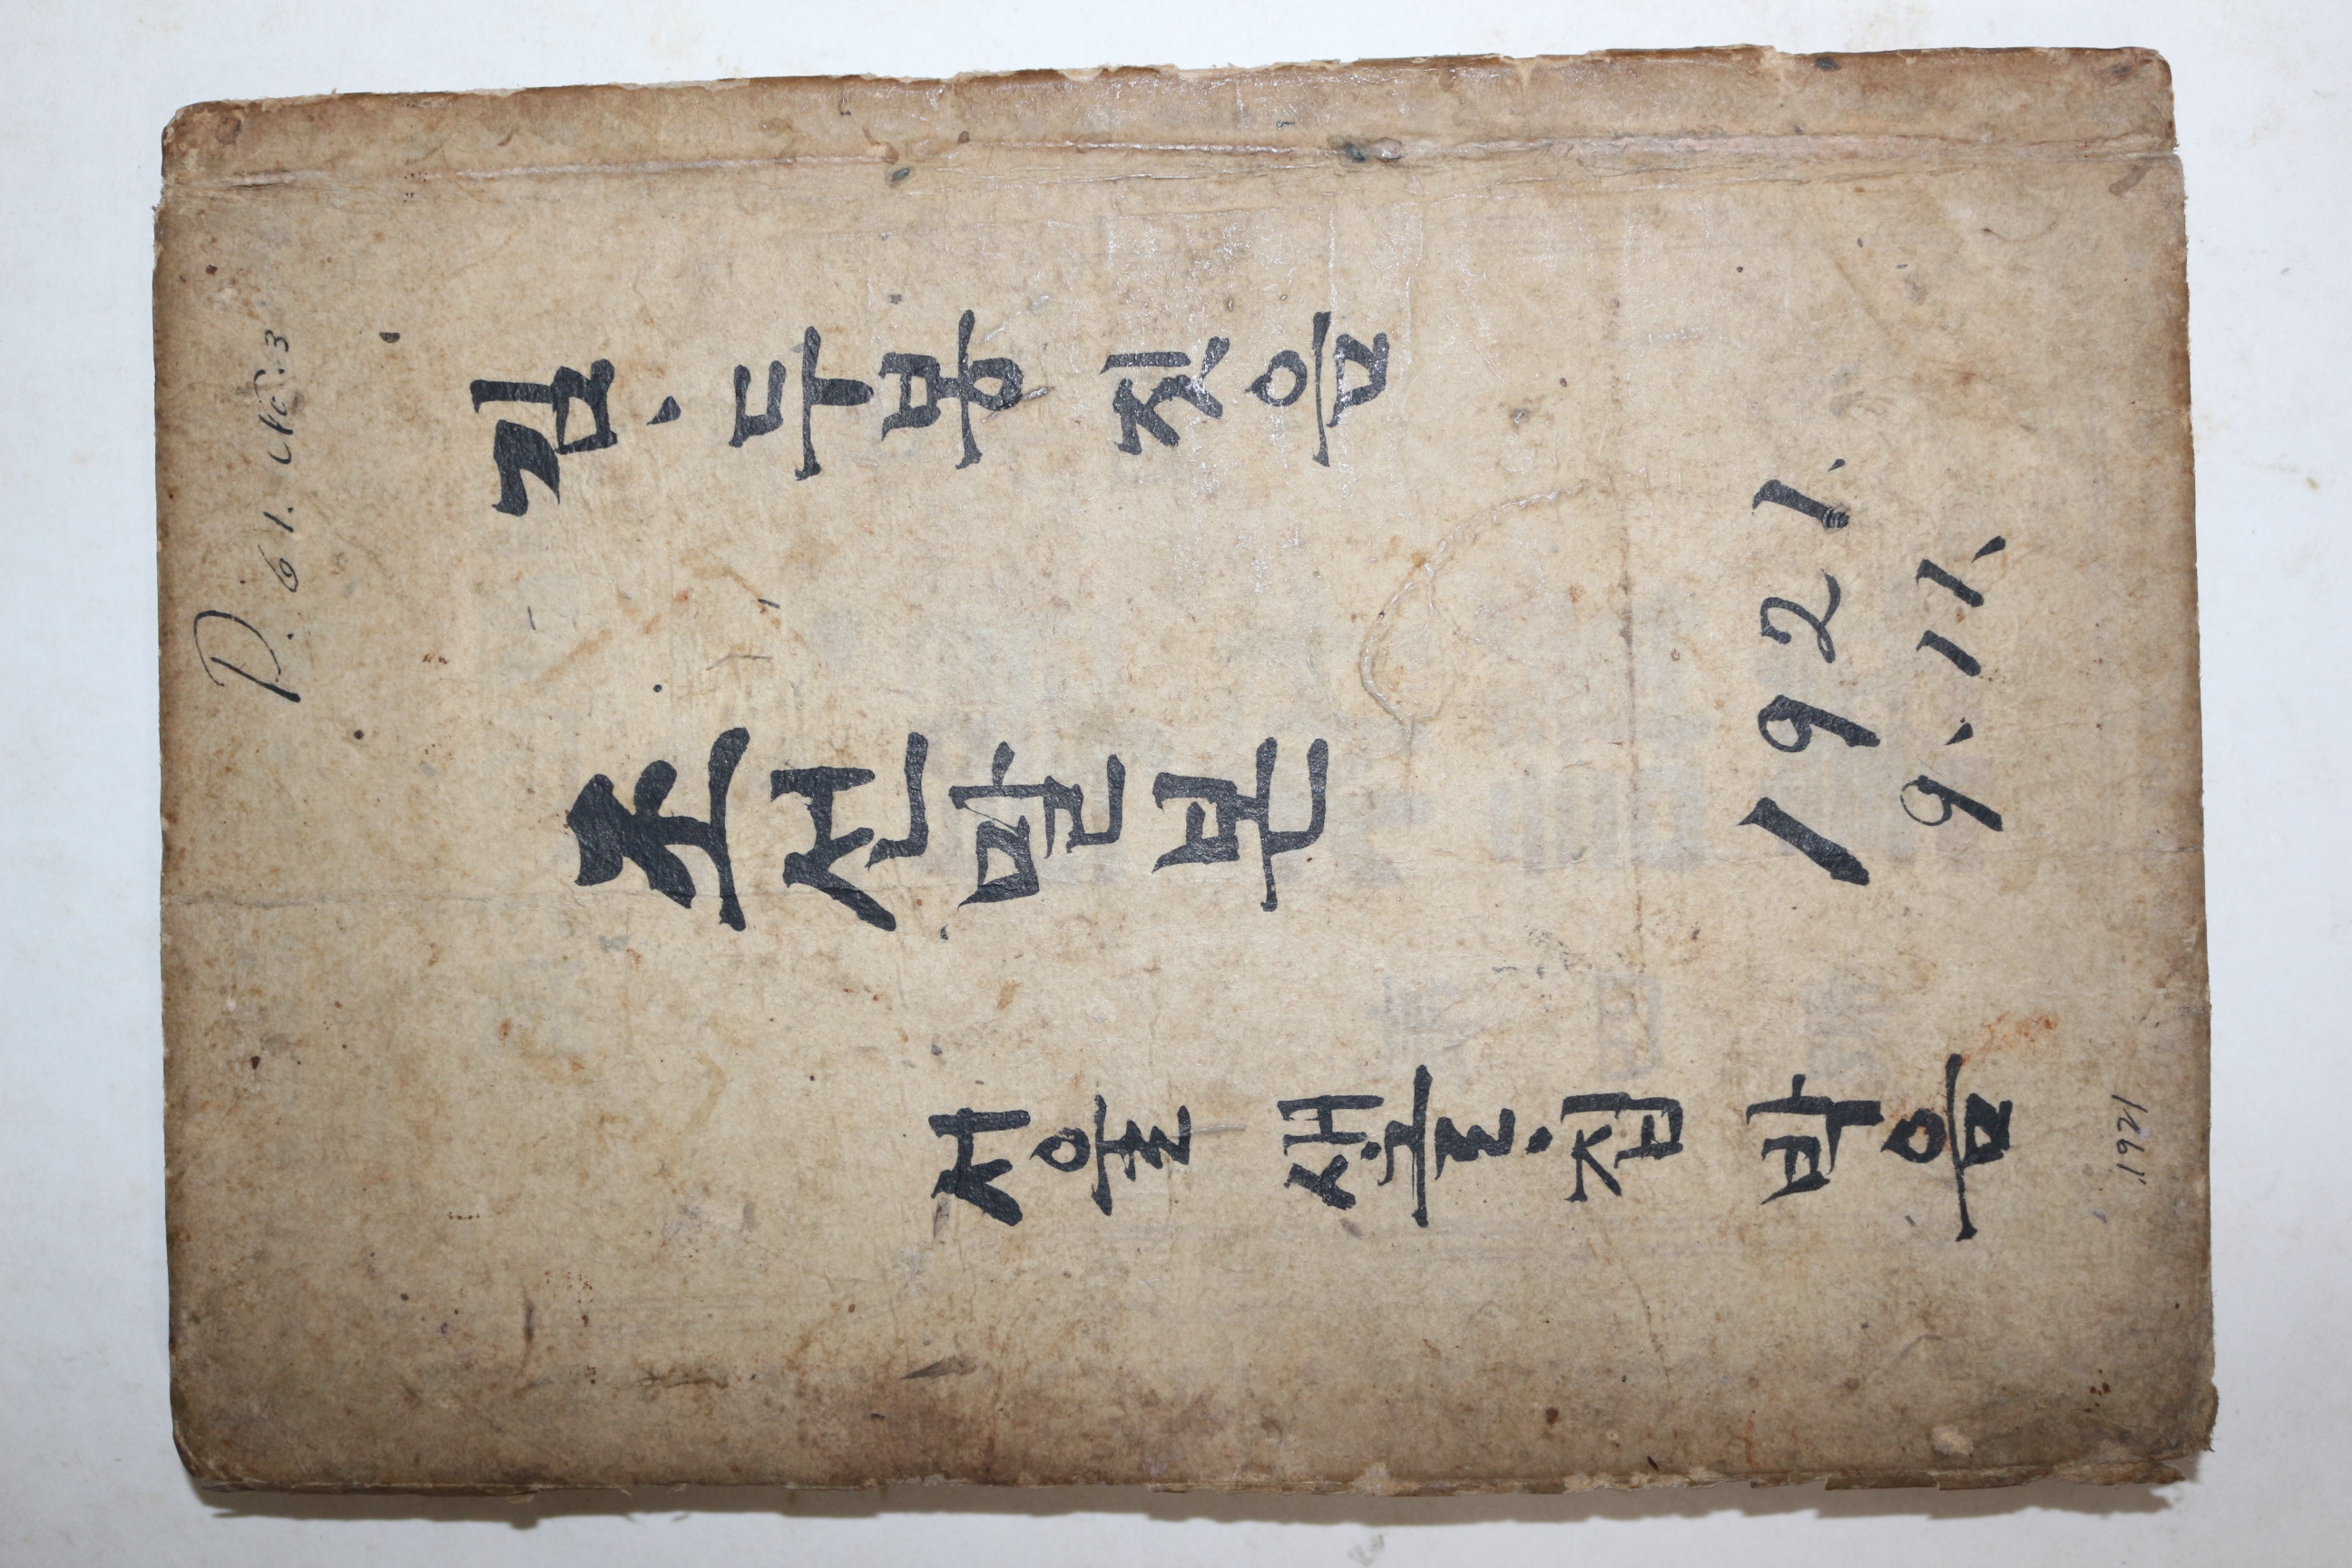 P. 61. No.3
김·두봉 짓음
조선말본
서울 새글·집 박음
1921.
9.11.
1921